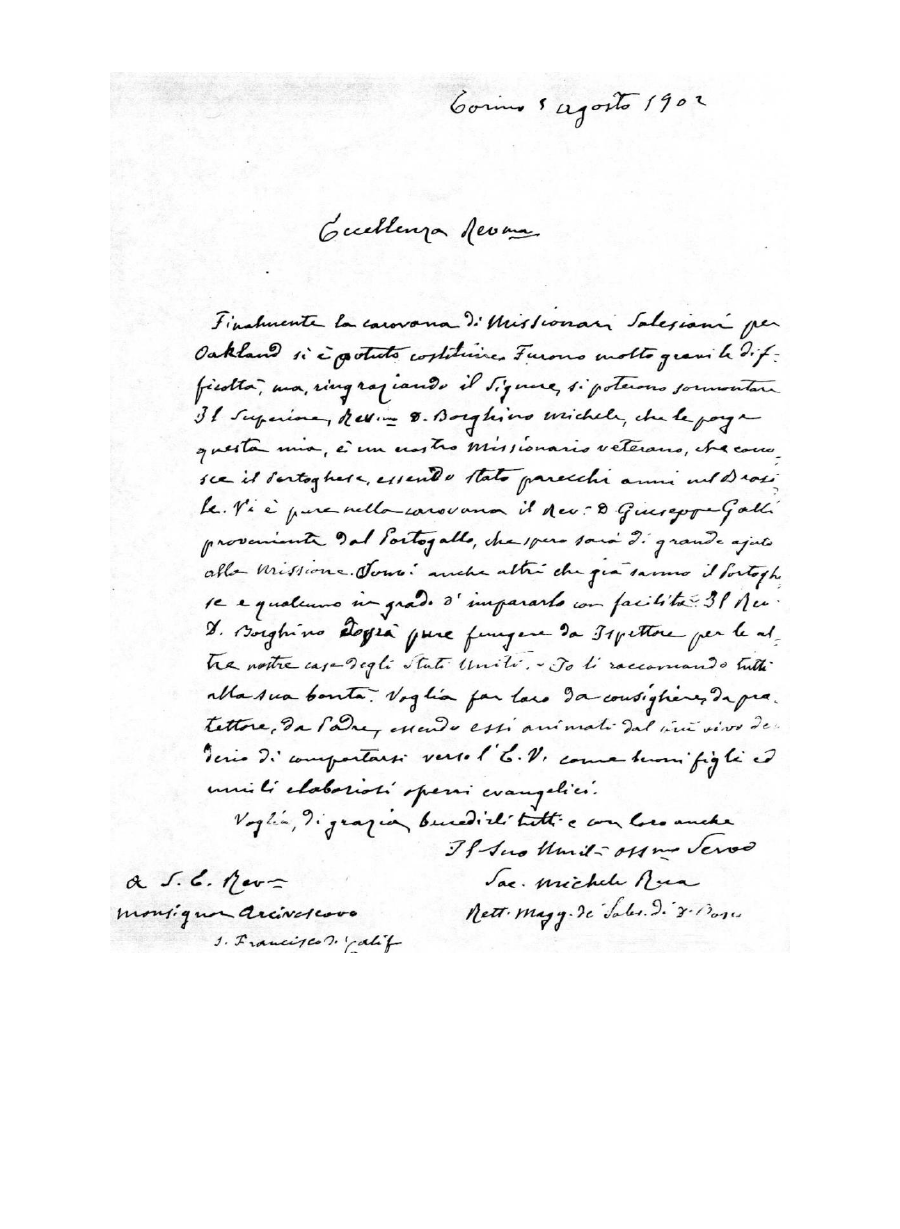 Torino 5 agosto 1902
Eccellenza Revma
Finalmente la carovana di Missionari Salesiani per
Oakland si è potuto costituire. Furono molto gravi le dif-
ficoltà, ma, ringraziando il Signore, si poterono sormontare
Il Superiore, Rev.mo D. Borghino Michele, che le porge
questa mia, è un nostro missionario veterano, che cono-
sce il Portoghese, essendo stato parecchi anni nel Brasi-
le. Vi è pure nella carovana il Rev. D Giuseppe Galli
proveniente dal Portogallo, che spero sarà di grande ajuto
alla Missione. Sonvi anche altri che già sanno il Portoghe
se e qualcuno in grado d' impararlo con facilità. Il Rev.
D. Borghino dovrà pure fungere da Ispettore per le al-
tre nostre case degli Stati Uniti. - Io li raccomando tutti
alla sua bontà. Voglia far loro da consigliere, da pro-
tettore, da Padre, essendo essi animati dal più vivo de-
siderio di comportarsi verso l' E. V. come buoni figli ed
umili e laboriosi operai evangelici.
Voglia, di grazia, benedirli tutti e con loro anche
Il Suo Umil. ossmo Servo
A S. E. Rev.
Sac. Michele Rua
Monsignor Arcivescovo
Rett. Magg. de' Sales. di D. Bosco
S. Francisco di Calif